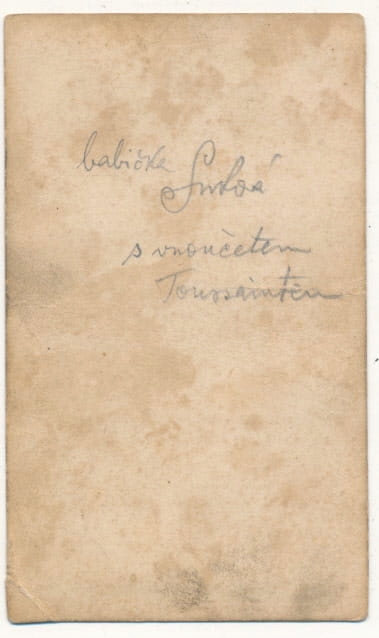 babička
s vnoučetem
Toussaintem